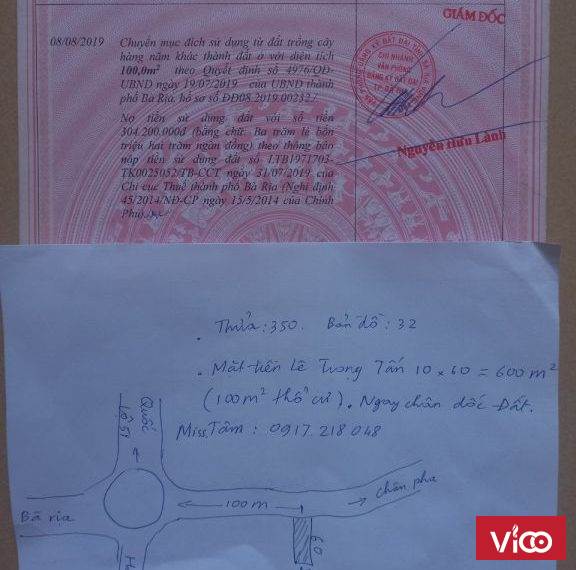 GIÁM ĐỐC
08/08/2019 Chuyển mục đích sử dụng từ đất trồng cây
hàng năm khác thành đất ở với diện tích
100,0m² theo Quyết định số 4976/QĐ-
UBND ngày 19/07/2019 của UBND thành
phố Bà Rịa, hồ sơ số DD08.2019.00232./.
Nợ tiền sử dụng đất với số tiền
304.200.000đ (bằng chữ: Ba trăm lẻ bốn
triệu hai trăm ngàn đồng) theo thông báo
nộp tiền sử dụng đất số LTB1971703-
TK0025052/TB-CCT ngày 31/07/2019 của
Chi cục Thuế thành phố Bà Rịa (Nghị định
45/2014/NĐ-CP ngày 15/5/2014 của Chính
Phủ)
CHI NHÁNH
VĂN PHÒNG
ĐĂNG KÝ ĐẤT ĐAI
TP. BÀ RỊA
Nguyễn Hữu Lành
. Thửa: 350. Bản đồ: 32
. Mặt tiền Lê Trọng Tấn 10 x 60 = 600 m²
(100m² thổ cư). Ngay chân dốc Đất.
Miss. Tâm : 0917.218 048
Quốc
Lộ 51
100 m
chân pha
Bà rịa
60
VICO